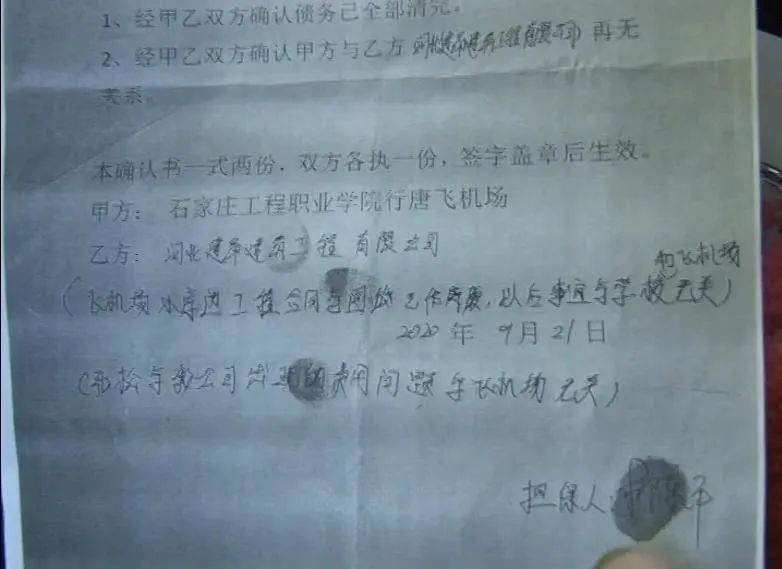 1、经甲乙双方确认债务已全部清完。
2、经甲乙双方确认甲方与乙方 河北建昂建筑工程有限公司 再无
关系。
本确认书一式两份．双方各执一份，签字盖章后生效。
甲方： 石家庄工程职业学院行唐飞机场
乙方： 河北建昂建筑工程有限公司
和飞机场
（飞机场水库边工程合同 已作废，以后事宜与学校无关）
2020年9月21日
（ 与 公司 的费用问题与飞机场无关）
担保人